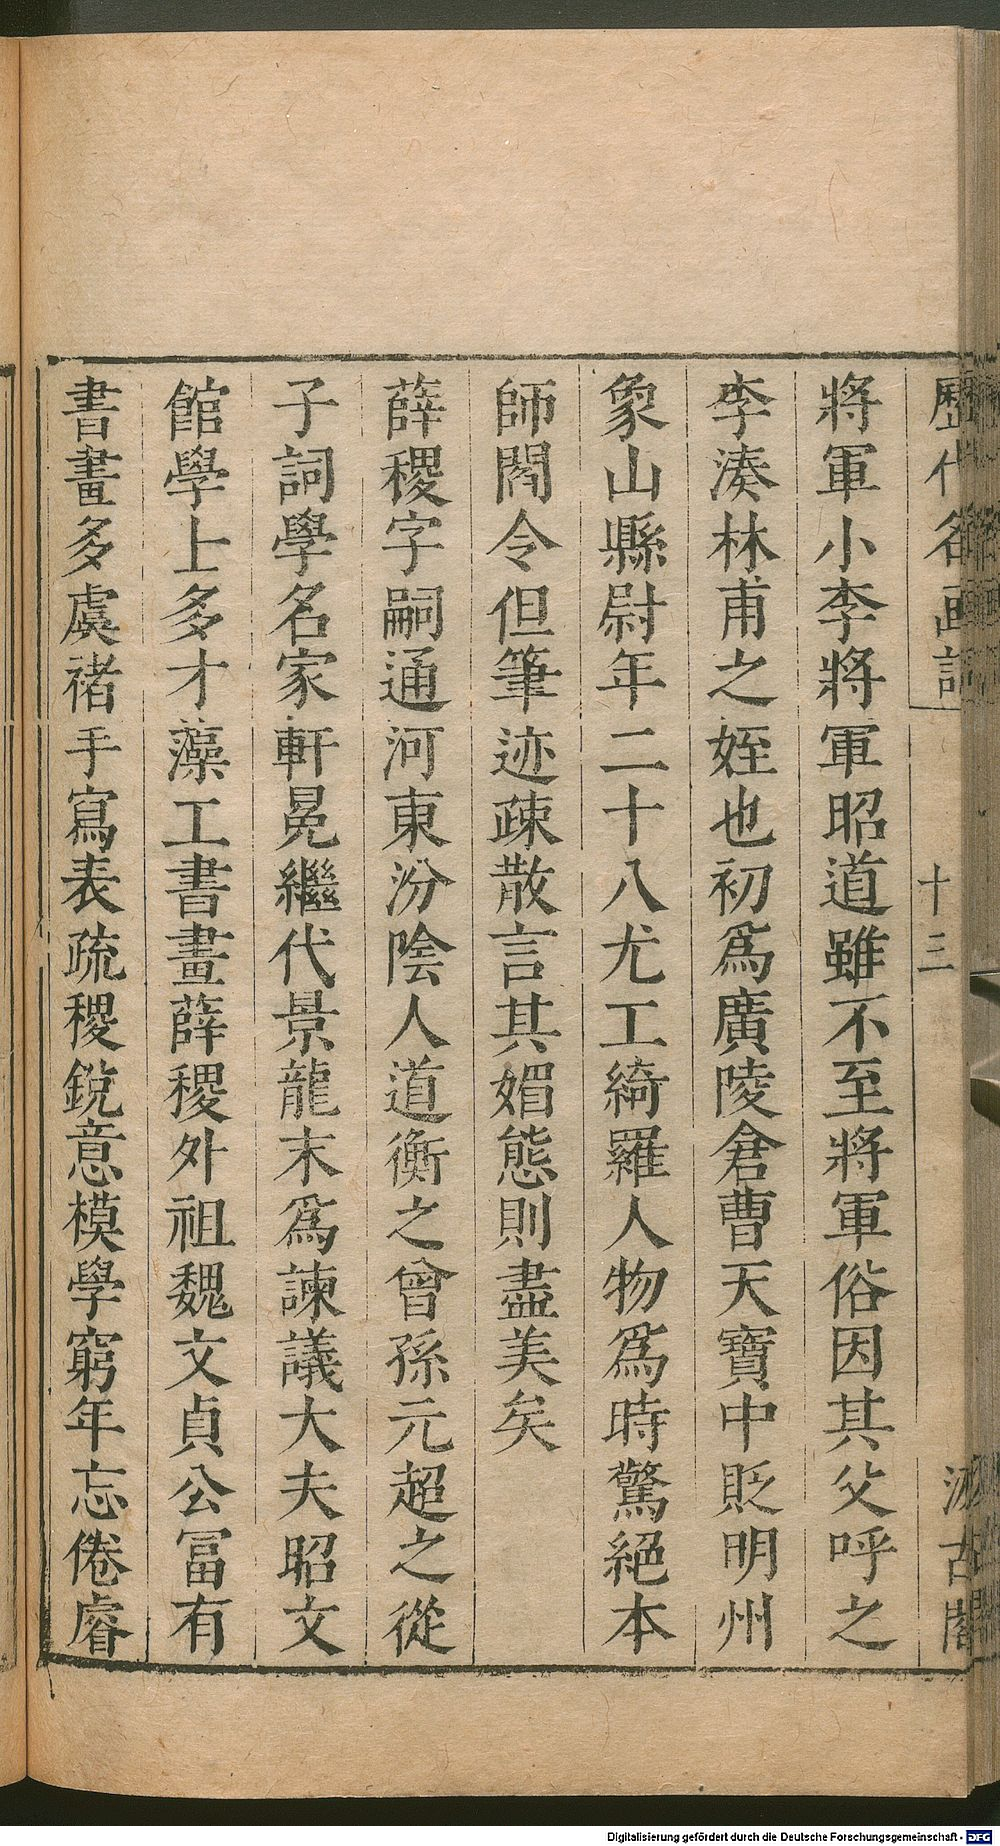 歷代名画記
十三
汲古閣
將軍小李將軍昭道雖不至將軍俗因其父呼之
李湊林甫之姪也初爲廣陵倉曹天寶中貶明州
象山縣尉年二十八尤工綺羅人物爲時驚絕本
師閻令但筆迹疎散言其媚態則盡美矣
薛稷字嗣通河東汾陰人道衡之曾孫元超之從
子詞學名家軒冕繼代景龍末爲諫議大夫昭文
館學士多才藻工書畫薛稷外祖魏文貞公富有
書畫多虞褚手寫表疏稷銳意模學窮年忘倦睿
Digitalisierung gefördert durch die Deutsche Forschungsgemeinschaft - DFG